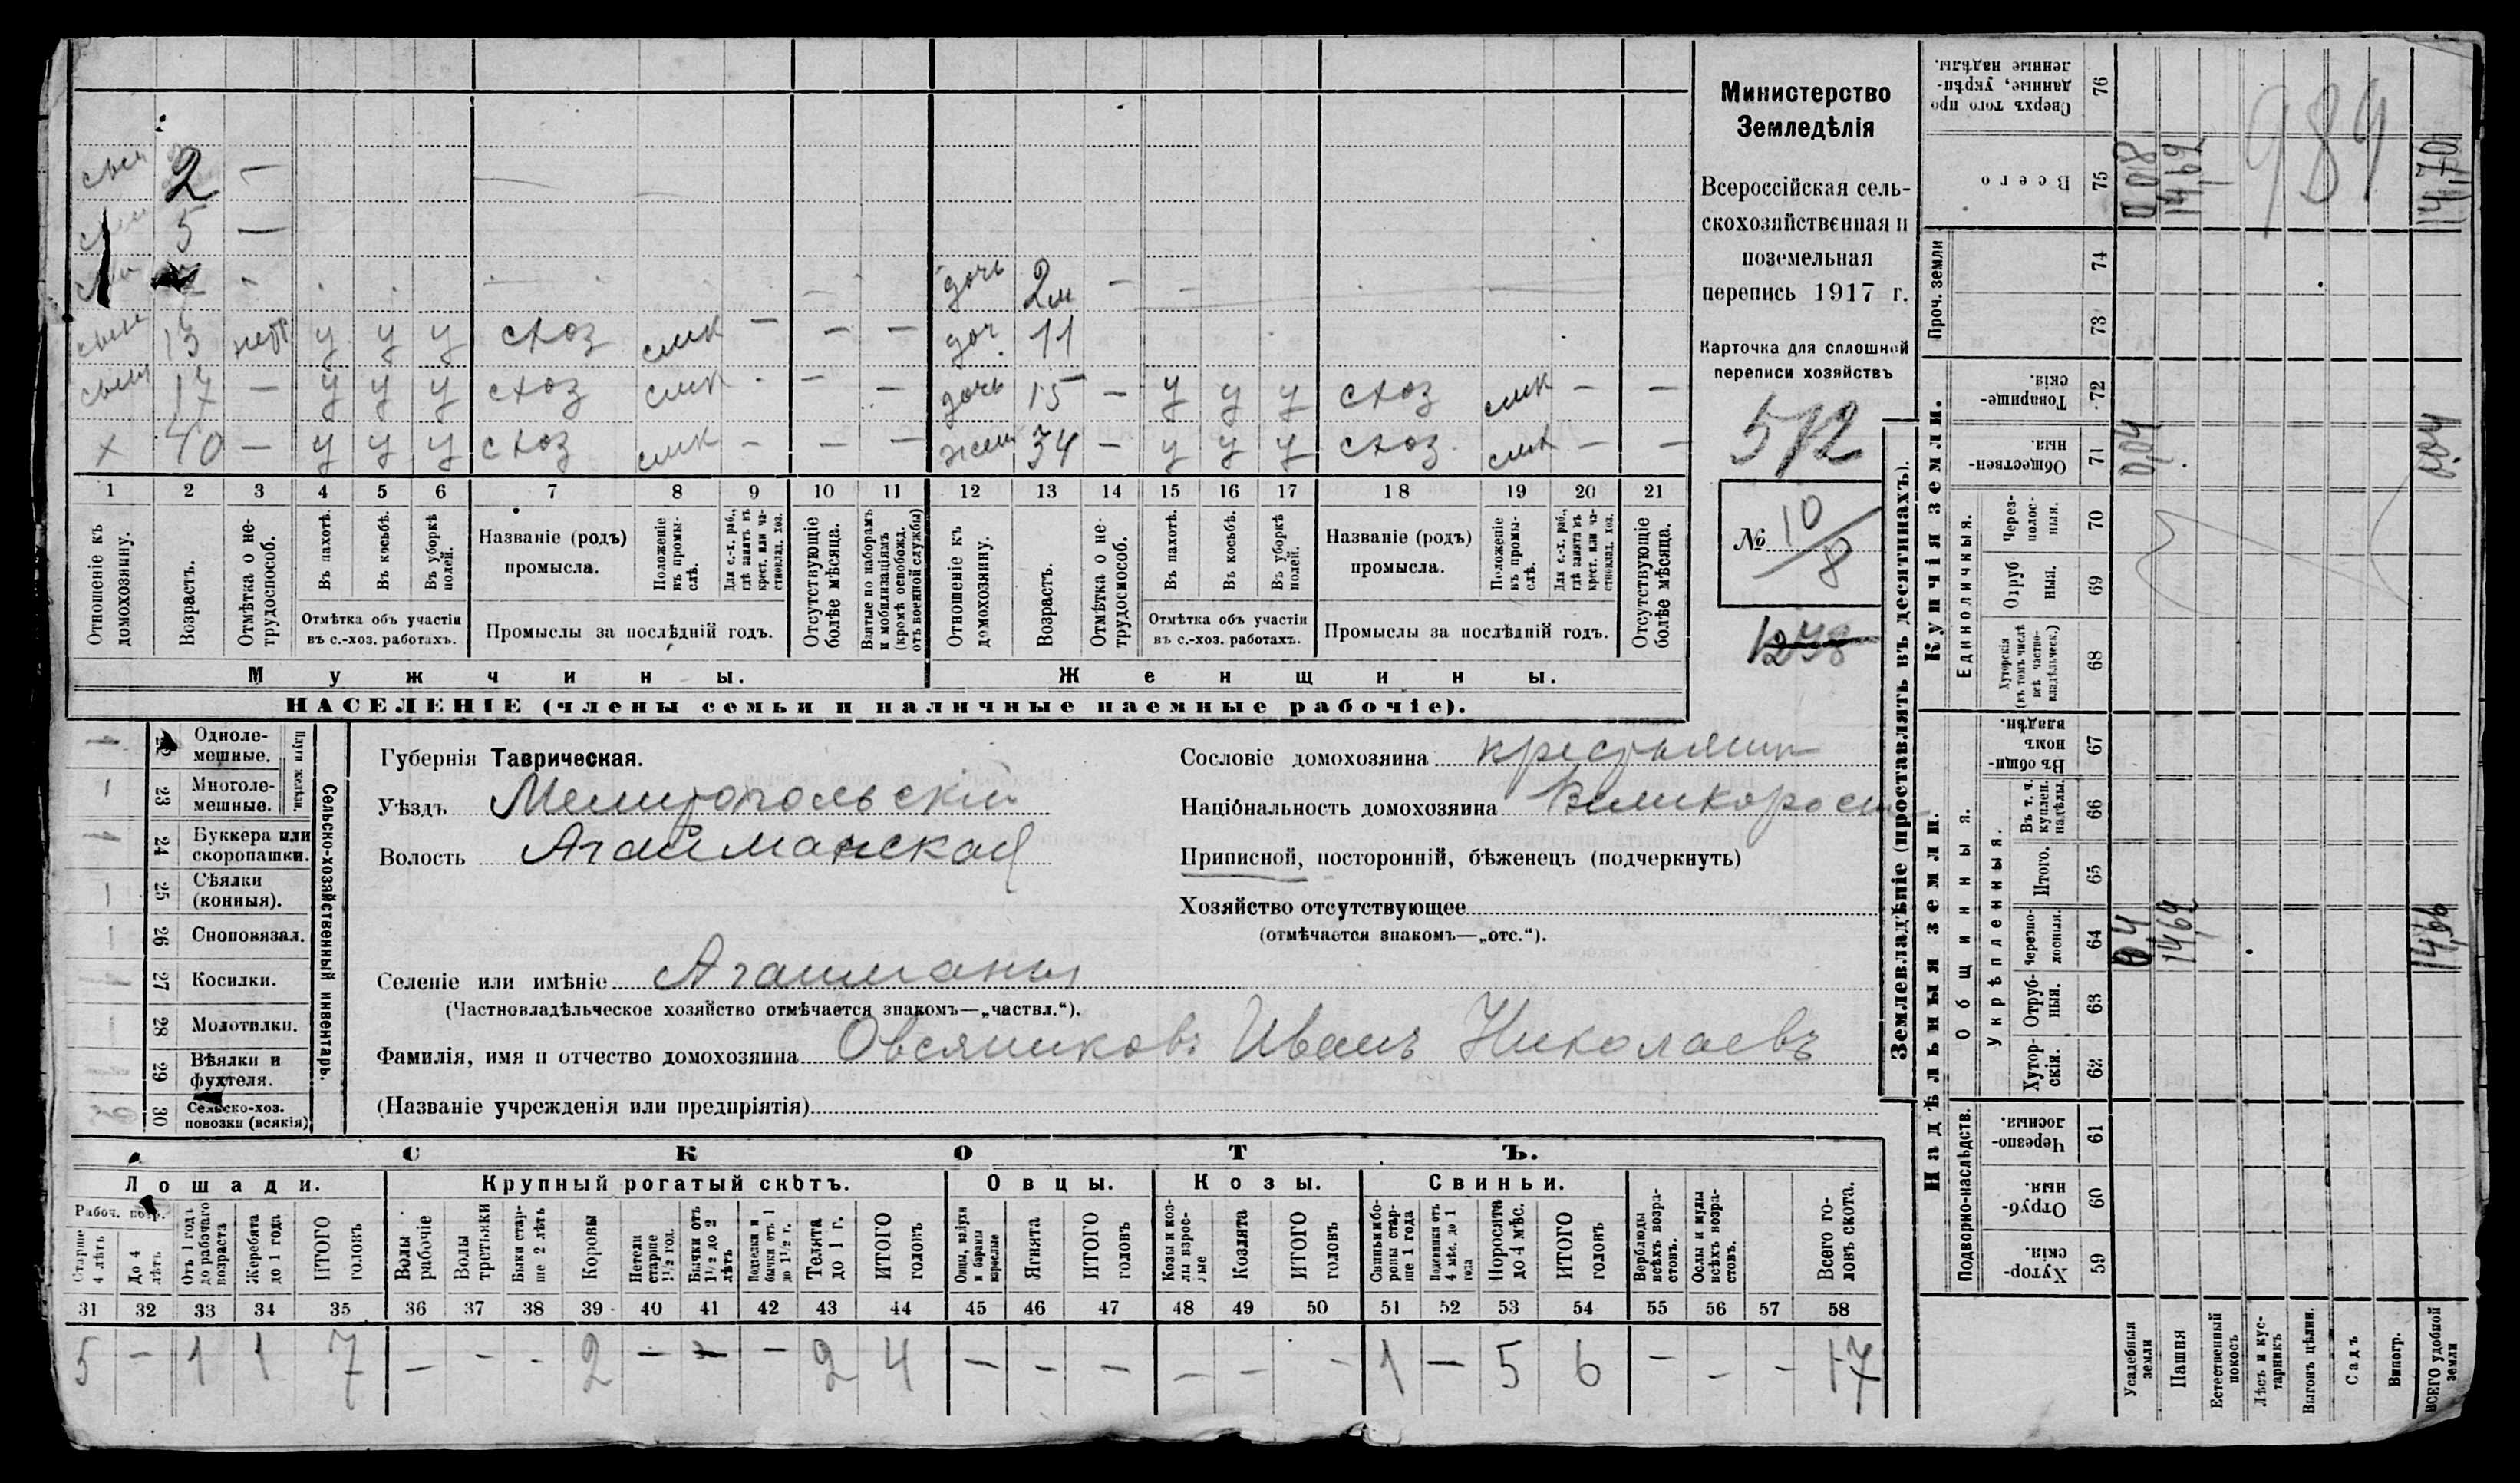 сын 2 —
сын 5 —
сын —
дочь 2м —
сын 13 нетр у у у схоз смк — — —
доч 11
сын 17 — у у у схоз смк — —
дочь 15 — у у у схоз смк — —
х 40 — у у у схоз смк — — —
жен 34 — у у у схоз смк — —
1 2 3 4 5 6 7 8 9 10 11 12 13 14 15 16 17 18 19 20 21
Отношеніе къ домохозяину.
Возрастъ.
Отмѣтка о не-трудоспособ.
Въ пахотѣ.
Въ косьбѣ.
Въ уборкѣ полей.
Отмѣтка объ участіи въ с.-хоз. работахъ.
Названіе (родъ) промысла.
Положеніе въ промы-слѣ.
Для с.-х. раб., гдѣ занятъ въ крест. или ча-стновлад. хоз.
Промыслы за послѣдній годъ.
Отсутствующіе болѣе мѣсяца.
Взятые по наборамъ и мобилизаціямъ (кромѣ освобожд. отъ военной службы)
Отношеніе къ домохозяину.
Возрастъ.
Отмѣтка о не-трудоспособ.
Въ пахотѣ.
Въ косьбѣ.
Въ уборкѣ полей.
Отмѣтка объ участіи въ с.-хоз. работахъ.
Названіе (родъ) промысла.
Положеніе въ промы-слѣ.
Для с.-х. раб., гдѣ занята въ крест. или ча-стновлад. хоз.
Промыслы за послѣдній годъ.
Отсутствующіе болѣе мѣсяца.
Мужчины.
Женщины.
НАСЕЛЕНІЕ (члены семьи и наличные наемные рабочіе).
Министерство
Земледѣлія
Всероссійская сель-
скохозяйственная и
поземельная
перепись 1917 г.
Карточка для сплошной
переписи хозяйствъ
572
№ 10/8
1238
Сельско-хозяйственный инвентарь.
Плуги желѣзн.
22 Однолемешные.
23 Многоле-мешные.
24 Буккера или скоропашки.
25 Сѣялки (конныя).
26 Сноповязал.
27 Косилки.
28 Молотилки.
29 Вѣялки и фухтеля.
30 Сельско-хоз. повозки (всякія)
Губернія Таврическая.
Уѣздъ Мелитопольскій
Волость Агайманская
Сословіе домохозяина крестьянин
Національность домохозяина Великоросс
Приписной, посторонній, бѣженецъ (подчеркнуть)
Хозяйство отсутствующее
(отмѣчается знакомъ—„отс.“).
Селеніе или имѣніе Агайманы
(Частновладѣльческое хозяйство отмѣчается знакомъ—„частвл.“).
Фамилія, имя и отчество домохозяина Овсяниковъ Иванъ Николаевъ
(Названіе учрежденія или предпріятія)
СКОТЪ.
Лошади.
Крупный рогатый скотъ.
Овцы.
Козы.
Свиньи.
Рабоч. возр.
Старше 4 лѣтъ
До 4 лѣтъ
Отъ 1 года до рабочаго возраста
Жеребята до 1 года
ИТОГО головъ
Волы рабочіе
Волы третьяки
Быки стар-ше 2 лѣтъ
Коровы
Нетели старше 1 1/2 год.
Бычки отъ 1 1/2 до 2 лѣтъ
Подтелки и бычки отъ 1 до 1 1/2 г.
Телята до 1 г.
ИТОГО головъ
Овцы, валухи и бараны взрослые
Ягнята
ИТОГО головъ
Козы и коз-лы взрос-лые
Козлята
ИТОГО головъ
Свиньи и бо-ровы стар-ше 1 года
Подсвинки отъ 4 мѣс. до 1 года
Поросята до 4 мѣс.
ИТОГО головъ
Верблюды всѣхъ возра-стовъ.
Ослы и мулы всѣхъ возра-стовъ.
Всего го-ловъ скота.
31 32 33 34 35 36 37 38 39 40 41 42 43 44 45 46 47 48 49 50 51 52 53 54 55 56 57 58
5 — 1 1 7 — — — 2 — — — 2 4 — — — — — — 1 — 5 6 — — — 17
Землевладѣніе (проставлять въ десятинахъ).
Надѣльныя земли.
Купчія земли.
Проч. земли
Подворно-наслѣдств.
Общинныя.
Укрѣпленныя.
Единоличныя.
Сверхъ того про данные, укрѣп-ленные надѣлы. 76
Всего 75
74
73
Товарище-скія. 72
Обществен-ныя. 71
Через-полос-ныя. 70
Отруб ныя. 69
Хуторскія (въ томъ числѣ всѣ частно-владѣльческ.) 68
Въ общин-номъ владѣн. 67
Въ т. ч. куплен. надѣлы. 66
Итого. 65
Черезпо-лосныя. 64
Отруб-ныя. 63
Хутор-скія. 62
Черезпо-лосныя. 61
Отруб-ныя. 60
Хутор-скія. 59
Усадебныя земли
Пашня
Естественный покосъ
Лѣсъ и кус-тарникъ
Выгонъ цѣлин.
Садъ
Виногр.
ВСЕГО удобной земли
0,08 14,62 14,70
989
0,04 0,04
04 14,62 14,66